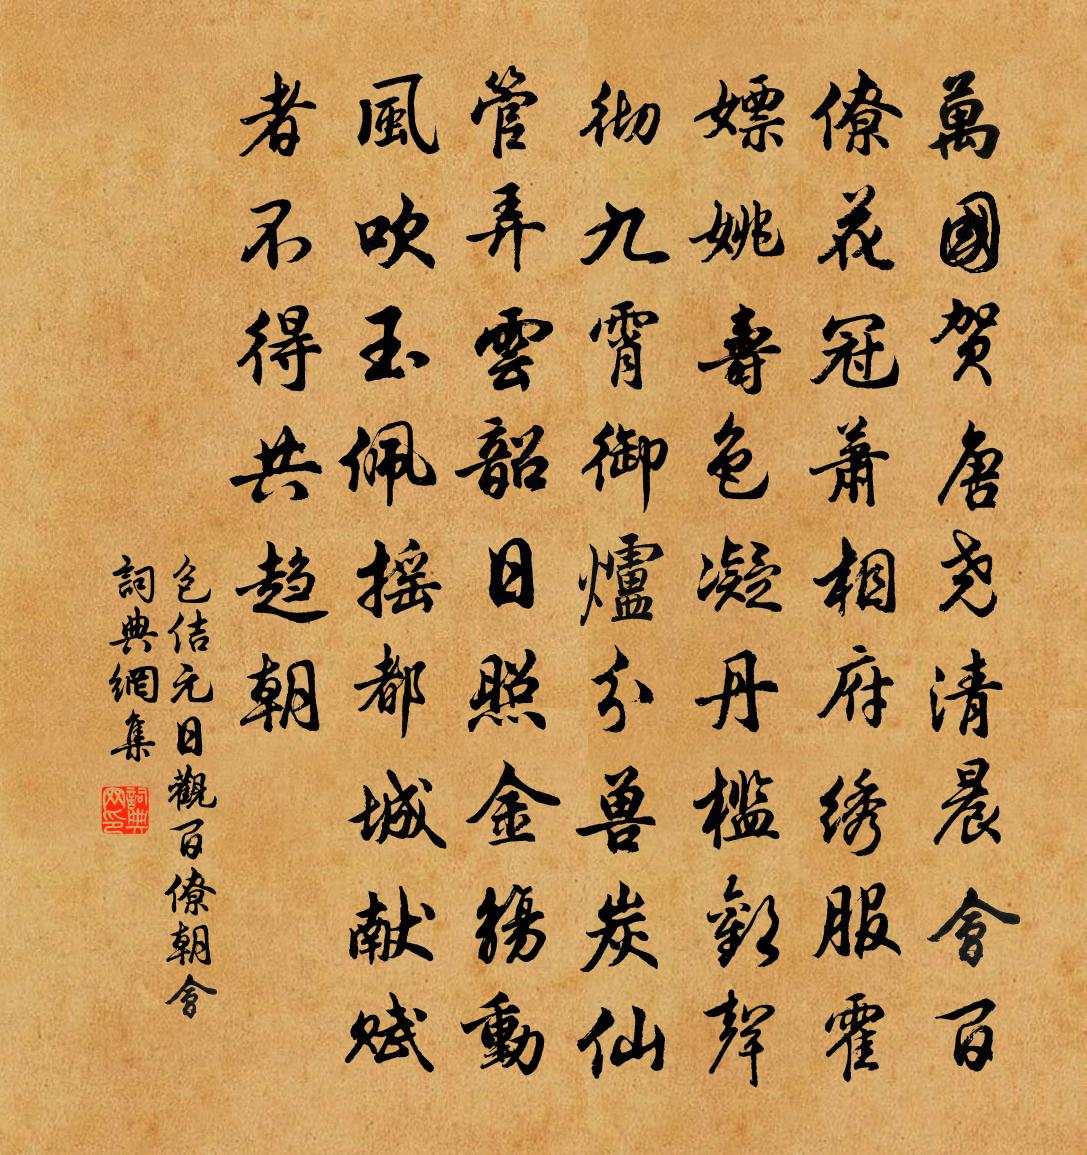 萬國贺唐尧清晨會百
僚花冠蕭相府绣服霍
嫖姚壽色凝丹槛歡聲
彻九霄御爐分兽炭仙
管弄雲韶日照金觴動
風吹玉佩摇都城献赋
者不得共趋朝
包佶元日觀百僚朝會
詞典網集
詞典网印